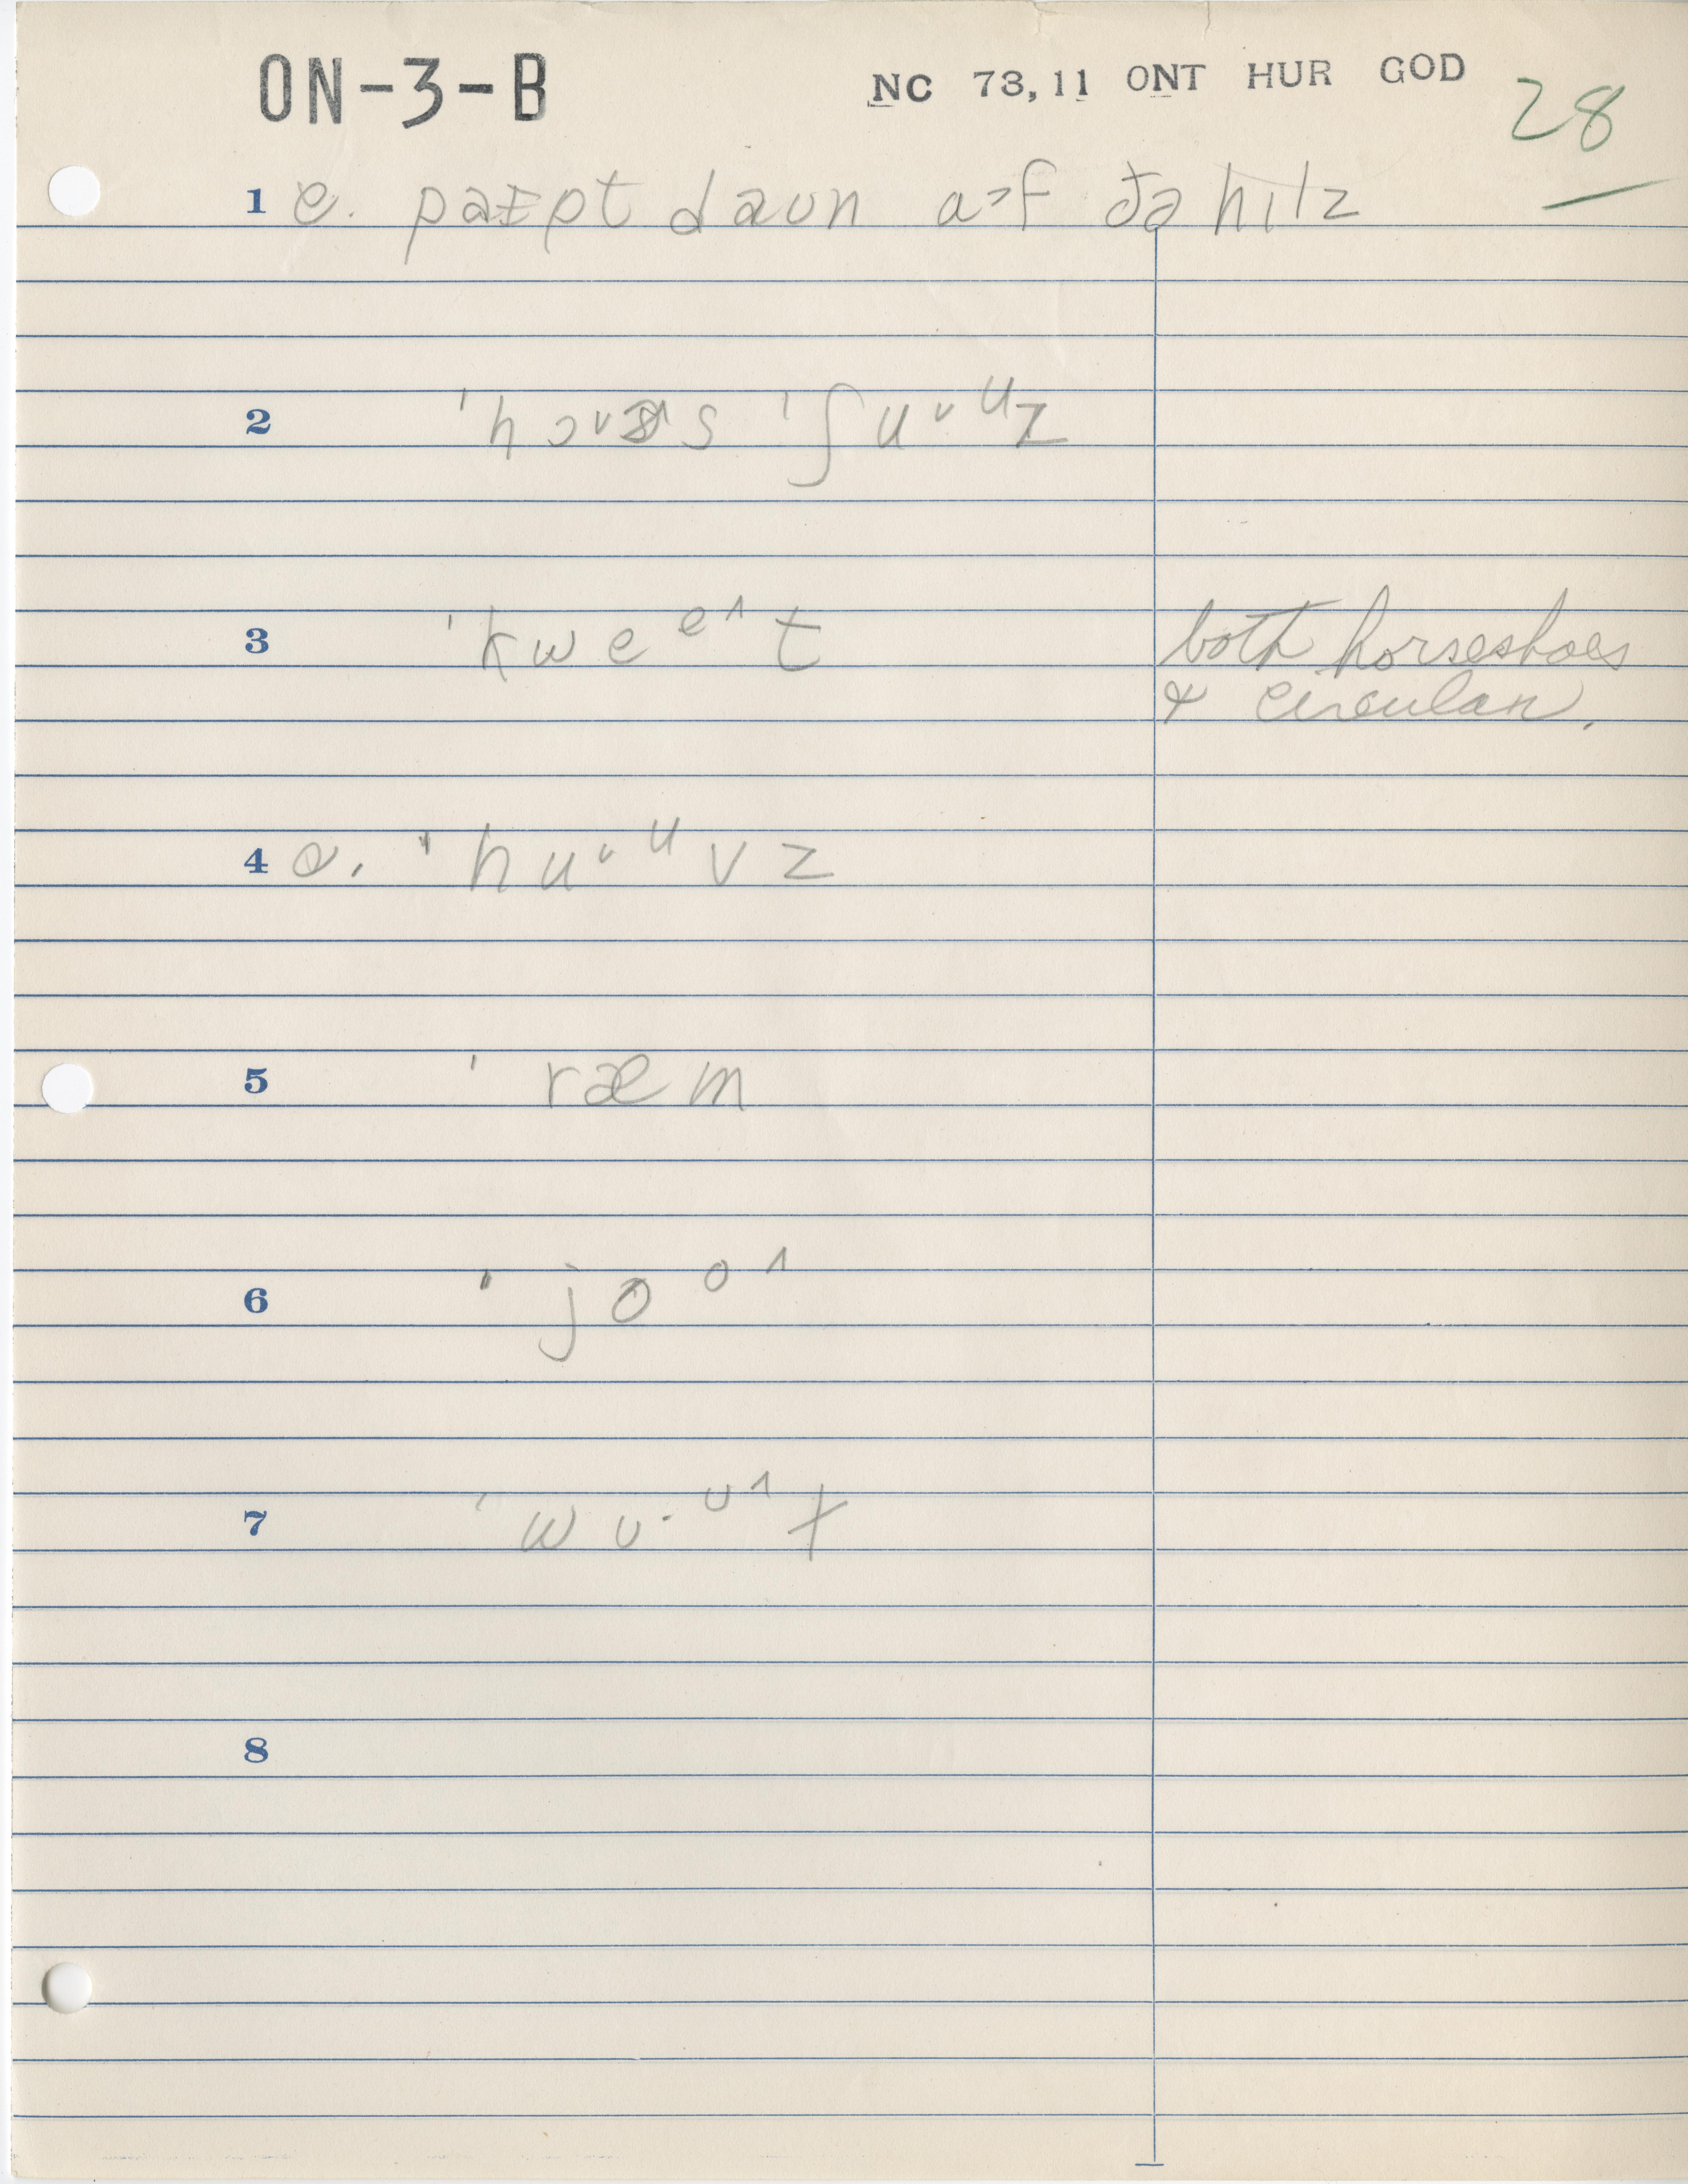 ON-3-B NC 73,11 ONT HUR GOD 28
1 e. paɪpt daʊn a>f ðə hɪlz
2 ˈhɔ˅ɚs ˈʃu˅ᵘz
3 ˈkweᵉ^t both horseshoes
& circular.
4 e. ˈhu˅ᵘvz
5 ˈræm
6 ˈjoᵒ^
7 ˈwʊ·ᶷ^ɫ
8